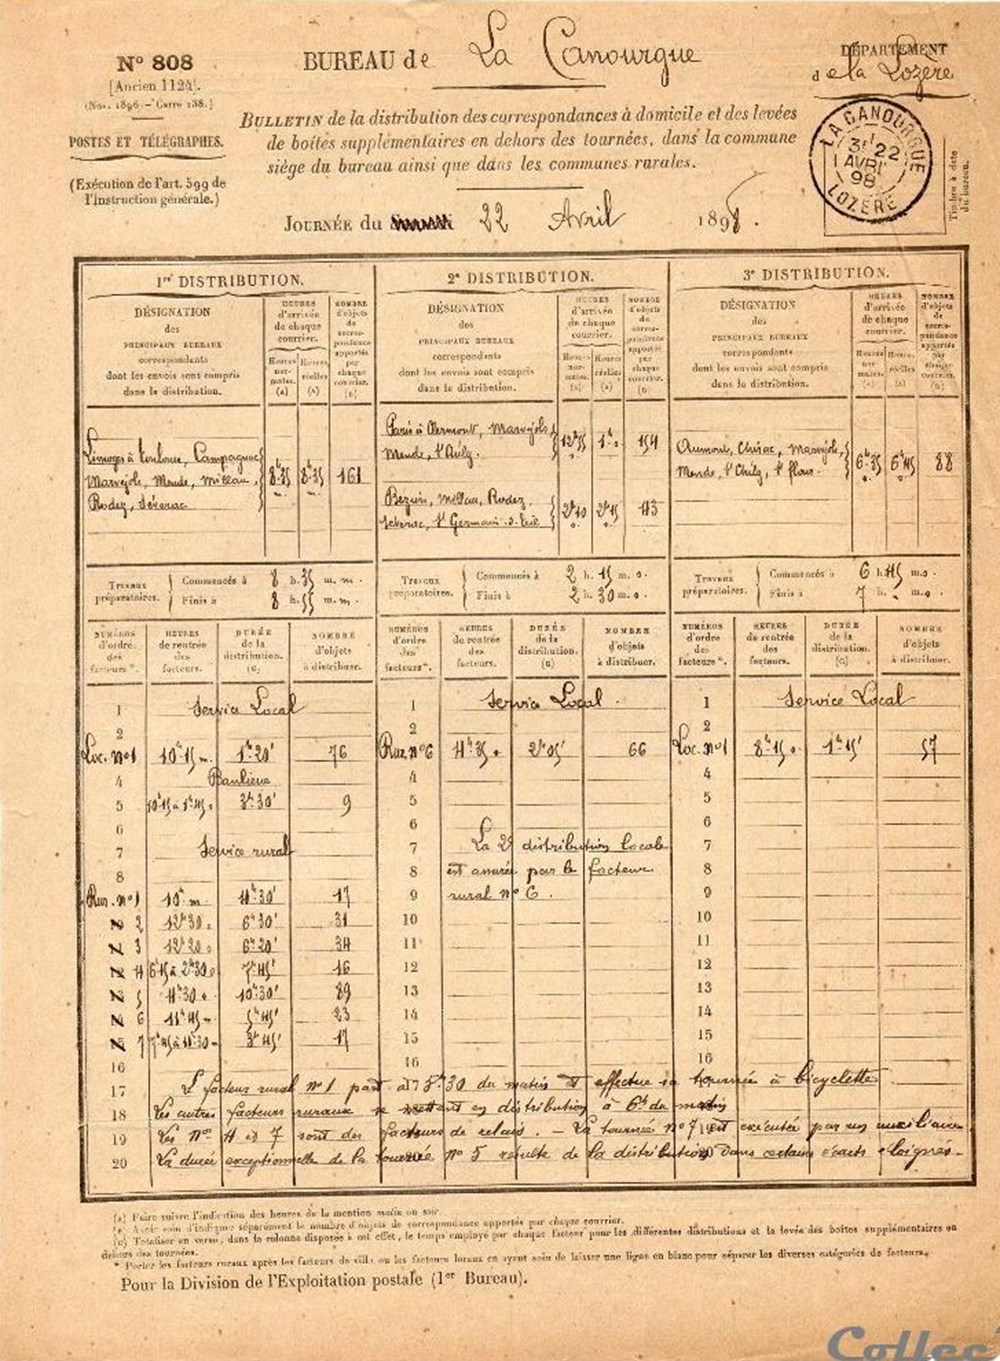 N° 808
[Ancien 1124].
(Nov. 1896 - Carré 138.)
POSTES ET TÉLÉGRAPHES.
(Exécution de l'art. 599 de
l'Instruction générale.)
BUREAU de La Canourgue
DÉPARTEMENT
de la Lozère
BULLETIN de la distribution des correspondances à domicile et des levées
de boîtes supplémentaires en dehors des tournées, dans la commune
siège du bureau ainsi que dans les communes rurales.
JOURNÉE du 22 Avril 1898.
LA CANOURGUE
22
AVRIL
98
LOZÈRE
Timbre à date
du bureau.
1re DISTRIBUTION.
DÉSIGNATION
des
PRINCIPAUX BUREAUX
correspondants
dont les envois sont compris
dans la distribution.
HEURES
d'arrivée
de chaque
courrier.
Heures
nor-
males.
(A)
Heures
réelles
(A)
NOMBRE
d'objets
de
corres-
pondance
apportés
par
chaque
courrier.
(B)
Limoges à Toulouse, Campagnac
Marvejols, Mende, Millau,
Rodez, Séverac
8h35 m. 8h35 m. 161
2e DISTRIBUTION.
DÉSIGNATION
des
PRINCIPAUX BUREAUX
correspondants
dont les envois sont compris
dans la distribution.
HEURES
d'arrivée
de chaque
courrier.
Heures
nor-
males.
(A)
Heures
réelles
(A)
NOMBRE
d'objets
de
corres-
pondance
apportés
par
chaque
courrier.
(B)
Paris à Clermont, Marvejols,
Mende,
12h55 1h s 154
Béziers, Millau, Rodez,
Séverac, St Germain
2h10 s. 2h15 s. 43
3e DISTRIBUTION.
DÉSIGNATION
des
PRINCIPAUX BUREAUX
correspondants
dont les envois sont compris
dans la distribution.
HEURES
d'arrivée
de chaque
courrier.
Heures
normales.
(A)
Heures
réelles
(A)
NOMBRE
d'objets
de
corres-
pondance
apportés
par
chaque
courrier.
(B)
Aumont, Chirac, Marvejols,
Mende, St Flour.
6h35 s. 6h45 s. 88
Travaux
préparatoires.
Commencés à 8 h. 35 m. m.
Finis à 8 h. 55 m. m.
Travaux
préparatoires.
Commencés à 2 h. 15 m. s.
Finis à 2 h. 30 m. s.
Travaux
préparatoires.
Commencés à 6 h. 45 m. s.
Finis à 7 h. m. s.
NUMÉROS
d'ordre
des
facteurs*.
HEURES
de rentrée
des
facteurs.
DURÉE
de la
distribution.
(C)
NOMBRE
d'objets
à distribuer.
1 Service Local
2
Loc. n°1 10h15 m 1h20' 76
4 Banlieue
5 10h15 à 1h45 s 3h30' 9
6
7 Service rural
8
Rur. n°1 10h m. 4h30' 17
2 12h30 s 6h30' 31
3 12h20 s 6h20' 34
4 6h15 à 2h30 s 7h45' 16
5 4h30 s 10h30' 89
6 11h45 m 5h45' 23
7 7h45 à 11h30 m 3h45' 17
16
NUMÉROS
d'ordre
des
facteurs*.
HEURES
de rentrée
des
facteurs.
DURÉE
de la
distribution.
(C)
NOMBRE
d'objets
à distribuer.
1 Service Local.
2
Rur. n°6 4h35 s 2h05' 66
4
5
6
7 La 2e distribution locale
8 est assurée par le facteur
9 rural n° 6.
10
11
12
13
14
15
16
NUMÉROS
d'ordre
des
facteurs*.
HEURES
de rentrée
des
facteurs.
DURÉE
de la
distribution.
(C)
NOMBRE
d'objets
à distribuer.
1 Service Local
2
Loc. n°1 8h15 s 1h15' 57
4
5
6
7
8
9
10
11
12
13
14
15
16
17 L facteur rural n° 1 part à 5h30 du matin et effectue sa tournée à bicyclette
18 Les autres facteurs ruraux se mettent en distribution à 6h du matin
19 Les nos 4 et 7 sont des facteurs de relais. - La tournée n° 7 est exécutée par un auxiliaire
20 La durée exceptionnelle de la tournée n° 5 résulte de la distribution dans certains écarts éloignés.
(A) Faire suivre l'indication des heures de la mention matin ou soir.
(B) Avoir soin d'indiquer séparément le nombre d'objets de correspondance apportés par chaque courrier.
(C) Totaliser au verso, dans la colonne disposée à cet effet, le temps employé par chaque facteur pour les différentes distributions et la levée des boîtes supplémentaires en
dehors des tournées.
* Porter les facteurs ruraux après les facteurs de ville ou les facteurs locaux en ayant soin de laisser une ligne en blanc pour séparer les diverses catégories de facteurs.
Pour la Division de l'Exploitation postale (1er Bureau).
Collec